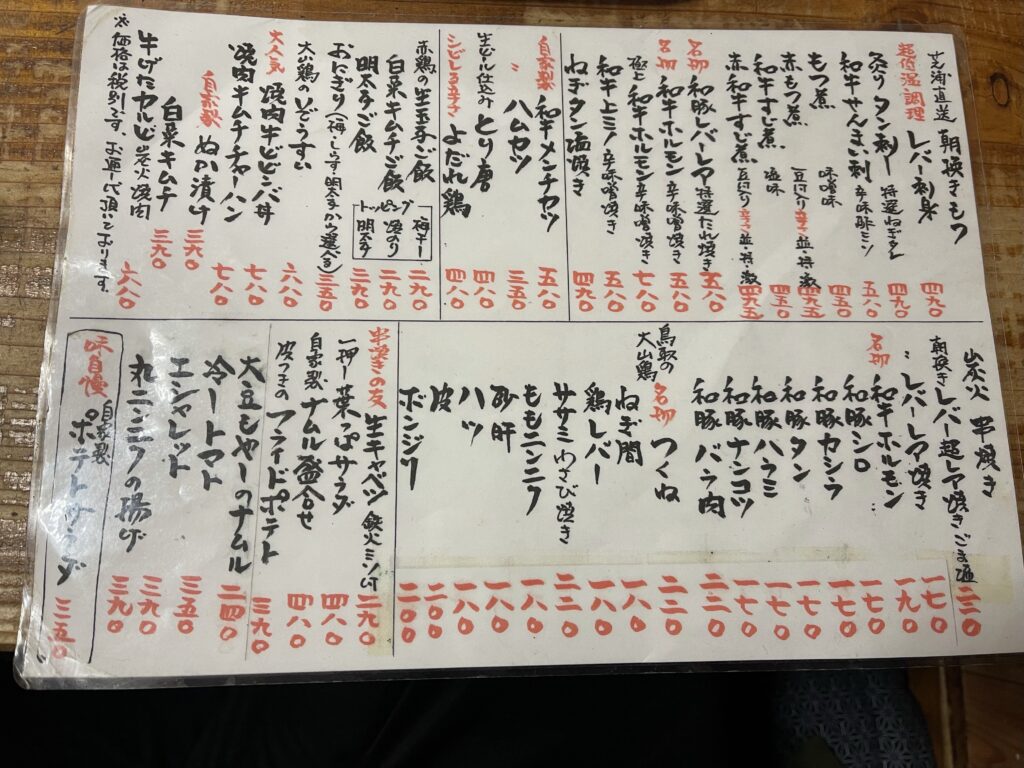 芝浦直送 朝挽きもつ
超低温調理 レバー刺身 四九〇
炙りタン刺し 特選ねぎだれ 四九〇
和牛せんまい刺 辛味酢ミソ 五八〇
もつ煮 味噌味 四五〇
赤もつ煮 豆腐入り 辛さ並・特・激 四九五
和牛すじ煮 塩味 四五〇
赤和牛すじ煮 豆腐入り 辛さ並・特・激 四九五
名物 和豚レバーレア 特選たれ焼き 五八〇
名物 和牛ホルモン 辛味噌焼き 五八〇
極上 和牛ホルモン 辛味噌焼き 七八〇
和牛上ミノ 辛味噌焼き 五八〇
ねぎタン塩焼き 四九〇
自家製 和牛メンチカツ 五八〇
〃 ハムカツ 三五〇
生ビール仕込み とり唐 四八〇
シビレる辛さ よだれ鶏 四八〇
赤鶏の生玉子ご飯 二九〇
白菜キムチご飯 二九〇
明太子ご飯 三九〇
トッピング 梅干し 焼のり 明太子
おにぎり(梅・しゃけ・明太子から選べる) 三五〇
大山鶏のぞうすい 六八〇
大人気 焼肉牛ビビンバ丼 七八〇
焼肉キムチチャーハン 七八〇
自家製 ぬか漬け 三九〇
白菜キムチ 三九〇
牛げたカルビ炭火焼肉 六八〇
※価格は税別です。お通し代頂いております。
炭火 串焼き
朝挽きレバー超レア焼きごま油 二三〇
〃 レバーレア焼き 一七〇
名物 和牛ホルモン 一九〇
和豚シロ 一七〇
和豚カシラ 一七〇
和豚タン 一七〇
和豚ハラミ 一七〇
和豚ナンコツ 一七〇
和豚バラ肉 二二〇
鳥取の大山鶏 名物 つくね 二二〇
ねぎ間 一八〇
鶏レバー 一八〇
ササミわさび焼き 二三〇
ももニンニク 一八〇
砂肝 一八〇
ハツ 一八〇
皮 二〇〇
ボンジリ 二〇〇
串焼きの友 生キャベツ 鉄火ミソ付 二九〇
一押 葉っぱサラダ 四八〇
自家製 ナムル盛合せ 四八〇
皮つきのフライドポテト 三九〇
大豆もやしのナムル 二四〇
冷しトマト 三五〇
エシャレット 三九〇
丸ニンニクの揚げ 三九〇
味自慢 自家製 ポテトサラダ 三五〇